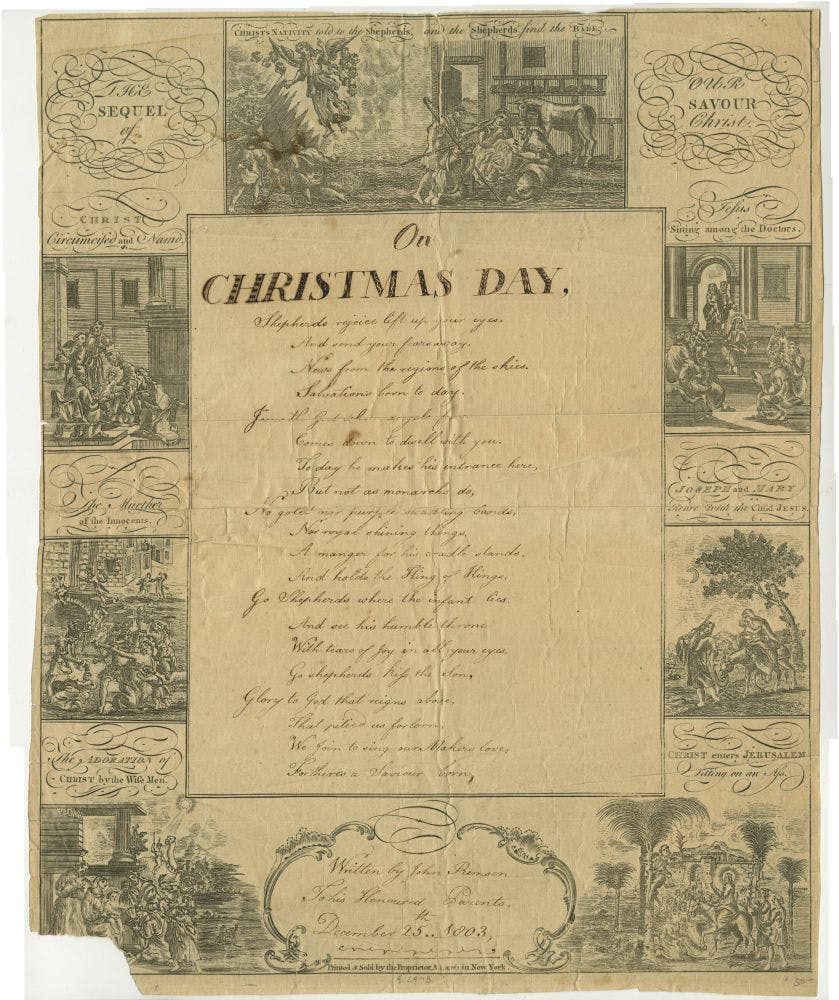 CHRISTS NATIVITY told to the Shepherds, and the Shepherds find the BABE.
THE
SEQUEL
of
OUR
SAVOUR
Christ.
CHRIST
Circumcised and Namd.
Jesus
Sitting among the Doctors.
On
CHRISTMAS DAY,
Shepherds rejoice lift up your eyes.
And send your fears away.
News from the regions of the skies.
Salvation's born to day.
Comes down to dwell with you.
To day he makes his entrance here,
But not as monarchs do,
No gold nor purple swadling bands,
Nor royal shining things,
A manger for his cradle stands.
And holds the King of Kings,
Go Shepherds where the infant lies.
And see his humble throne
With tears of joy in all your eyes,
Go shepherds kiss the Son,
Glory to God that reigns above,
That pities us forlorn,
We join to sing our Makers love,
For theres a Saviour born,
The Murther
of the Innocents.
JOSEPH and MARY
With the Child JESUS.
The ADORATION of
CHRIST by the Wise Men.
CHRIST enters JERUSALEM
Sitting on an Ass.
Written by John Remsen
To his Honoured Parents.
December 25th 1803,
Printed & Sold by the Proprietor in New York.